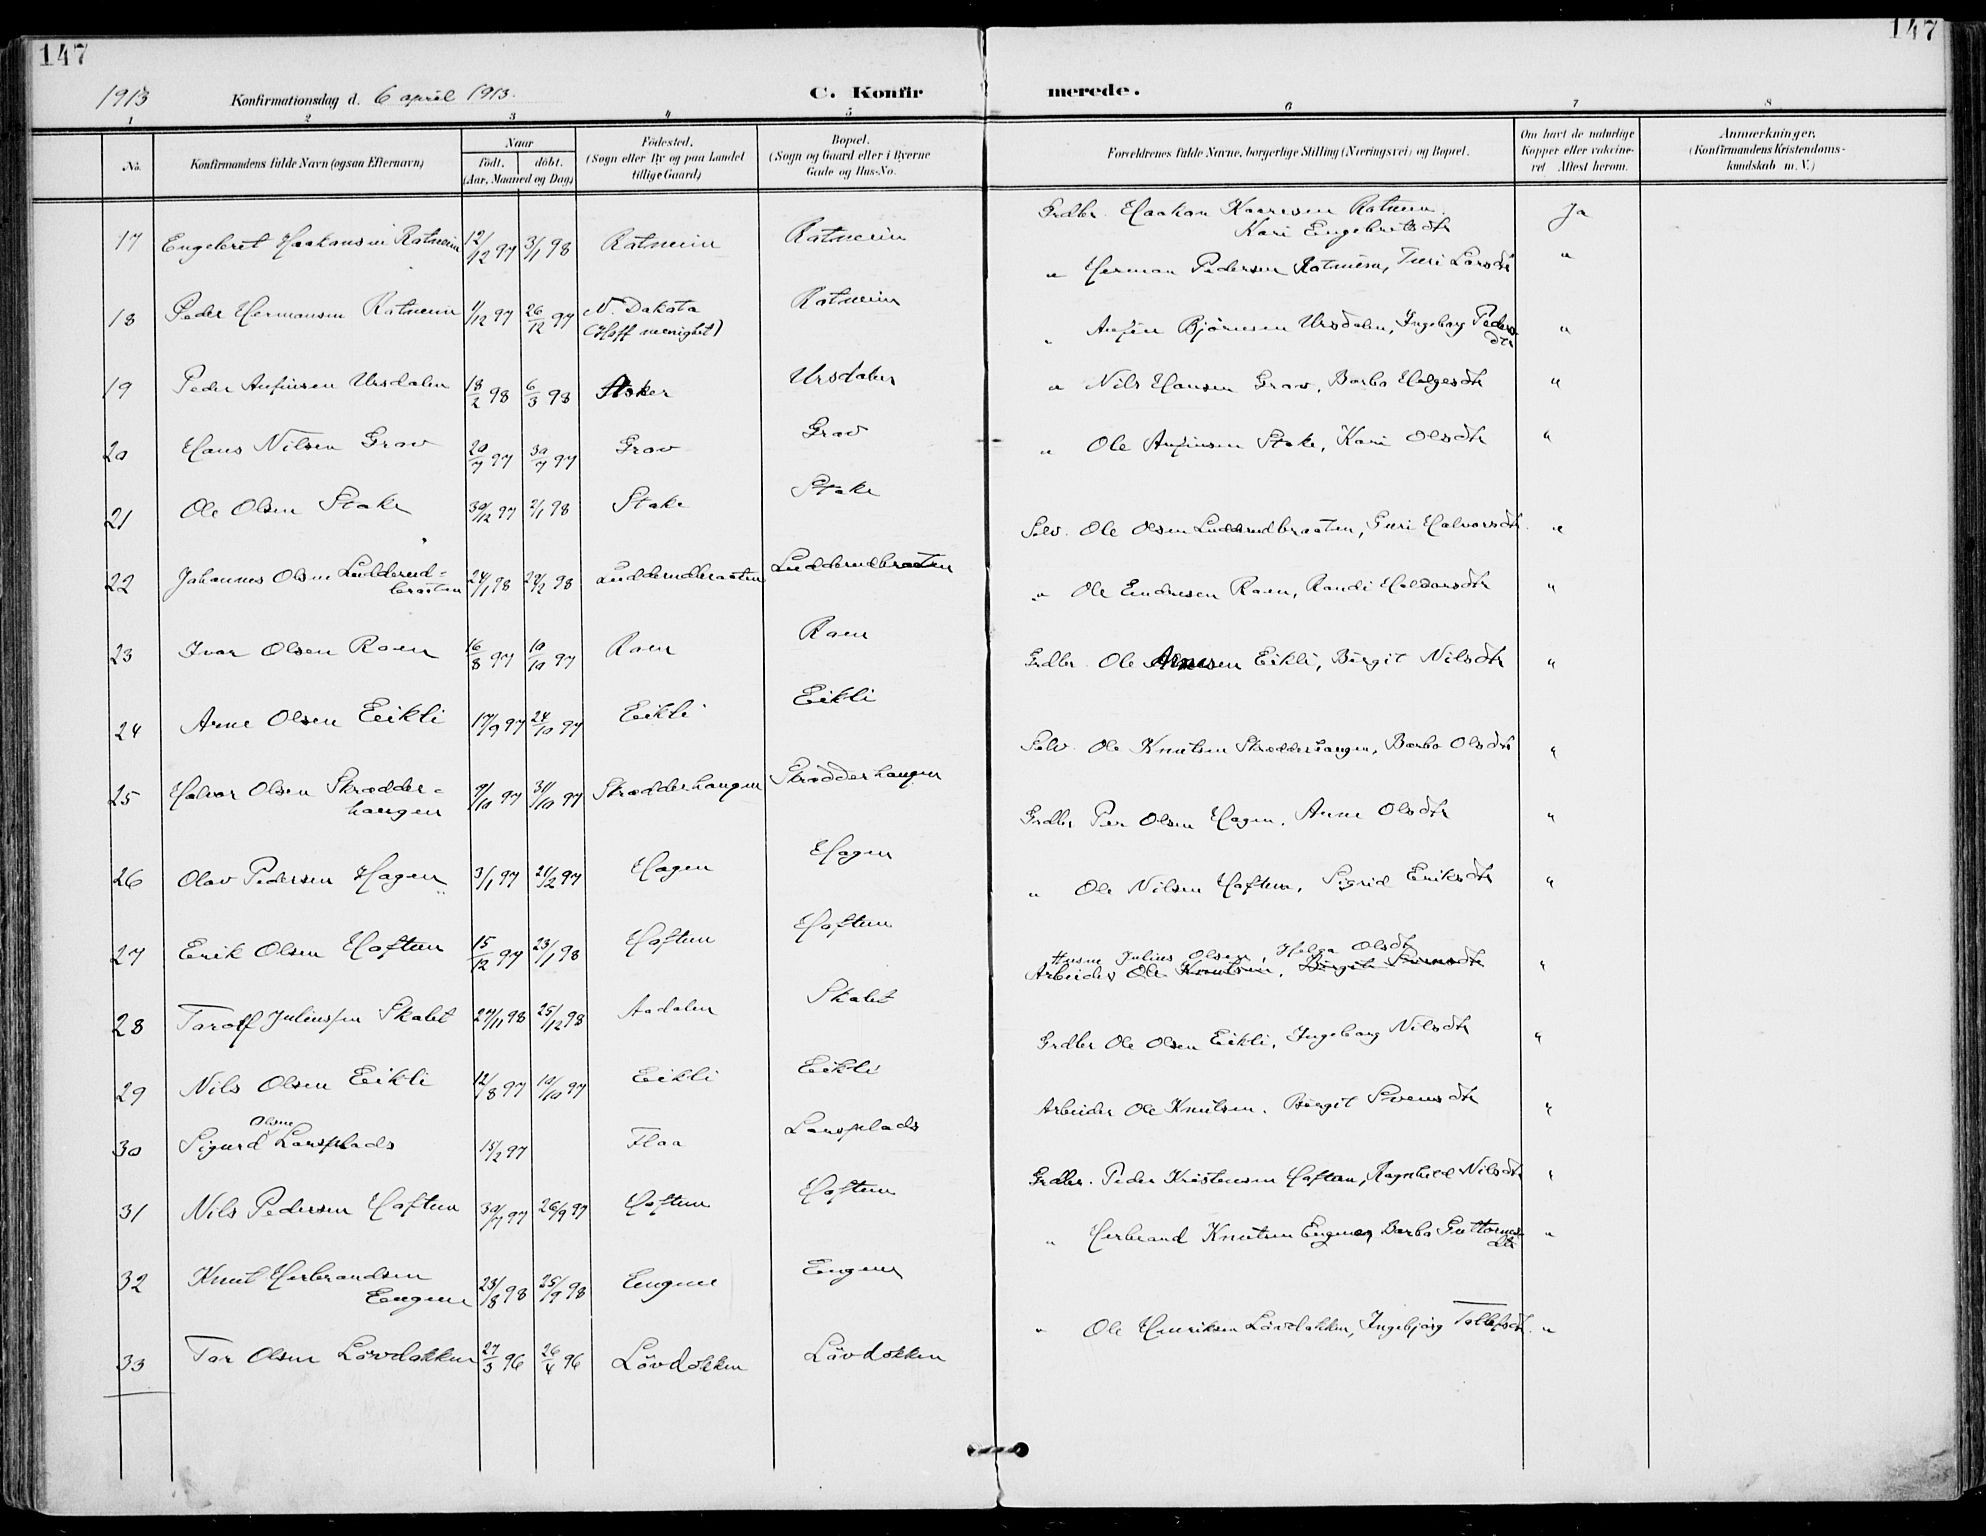 147
147
1913 Konfirmationsdag d. 6 april 1913.
C. Konfirmerede.
1 2 3 4 5 6 7 8
No.
Konfirmandens fulde Navn (ogsaa Efternavn)
Naar
født. døbt.
(Aar, Maaned og Dag)
Fødested.
(Sogn eller By og paa Landet
tillige Gaard)
Bopæl.
(Sogn og Gaard eller i Byerne
Gade og Hus-No.
Forældrenes fulde Navne, borgerlige Stilling (Næringsvei) og Bopæl.
Om havt de naturlige
Kopper eller vakcine-
ret. Attest herom.
Anmærkninger.
(Konfirmandens Kristendoms-
kundskab m. V.)
17 Engebret Haakonsen Rotneim 12/12 97 3/1 98 Rotneim Rotneim Grdbr. Haakon Kaaresen Rotneim.
Kari Engebretsdtr Ja
18 Peder Hermansen Rotneim 1/12 97 26/12 97 N. Dakota
(Hoff menighet) Rotneim " Herman Pedersen Rotneim, Turi Larsdtr "
19 Peder Anfinsen Ursdalen 18/2 98 6/3 98 Asker Ursdalen " Anfin Bjørnsen Ursdalen, Ingeborg Peders-
dtr "
20 Hans Nilsen Grov 20/7 97 30/7 97 Grov Grov " Nils Hansen Grov, Barbo Helgesdtr "
21 Ole Olsen Stake 30/12 97 2/1 98 Stake Stake " Ole Anfinsen Stake, Kari Olsdtr "
22 Johannes Olsen Ludderud-
braaten 24/1 98 24/2 98 Ludderudbraaten Ludderudbraaten Selv. Ole Olsen Ludderudbraaten, Guri Halvorsdtr. "
23 Ivar Olsen Roen 16/8 97 10/10 97 Roen Roen " Ole Endresen Roen, Randi Halvorsdtr "
24 Arne Olsen Eikli 17/9 97 24/10 97 Eikli Eikli Grdbr. Ole Arnesen Eikli, Birgit Nilsdtr "
25 Halvor Olsen Skrædder-
haugen 9/10 97 31/10 97 Skrædderhaugen Skrædderhaugen Selv. Ole Knutsen Skrædderhaugen, Barbo Olsdtr "
26 Olav Pedersen Hagen 3/1 97 21/2 97 Hagen Hagen Grdbr Per Olsen Hagen, Anne Olsdtr "
27 Erik Olsen Haftun 15/12 97 23/1 98 Haftun Haftun " Ole Nilsen Haftun, Sigrid Eriksdtr "
28 Torolf Juliussen Skalet 27/11 98 25/12 98 Aadalen Skalet Husm Julius Olsen, Helga Olsdtr
Arbeider Ole Knutsen, Birgit Svensdtr "
29 Nils Olsen Eikli 12/8 97 10/10 97 Eikli Eikli Grdbr Ole Olsen Eikli, Ingeborg Nilsdtr "
Olsen
30 Sigurd Larsplads 15/2 97 Flaa Larsplads Arbeider Ole Knutsen. Birgit Svensdtr "
31 Nils Pedersen Haftun 30/7 97 26/9 97 Haftun Haftun Grdbr. Peder Kristensen Haftun, Ragnhild Nilsdtr "
32 Knut Herbrandsen
Eugene 23/8 98 25/9 98 Eugene Eugene " Herbrand Knutsen Eugene, Barbo Guttormsd
dtr "
33 Tor Olsen Lövdokken 27/3 96 26/4 96 Lövdokken Lövdokken " Ole Henriksen Lövdokken, Ingebjörg Tollefsdtr. "